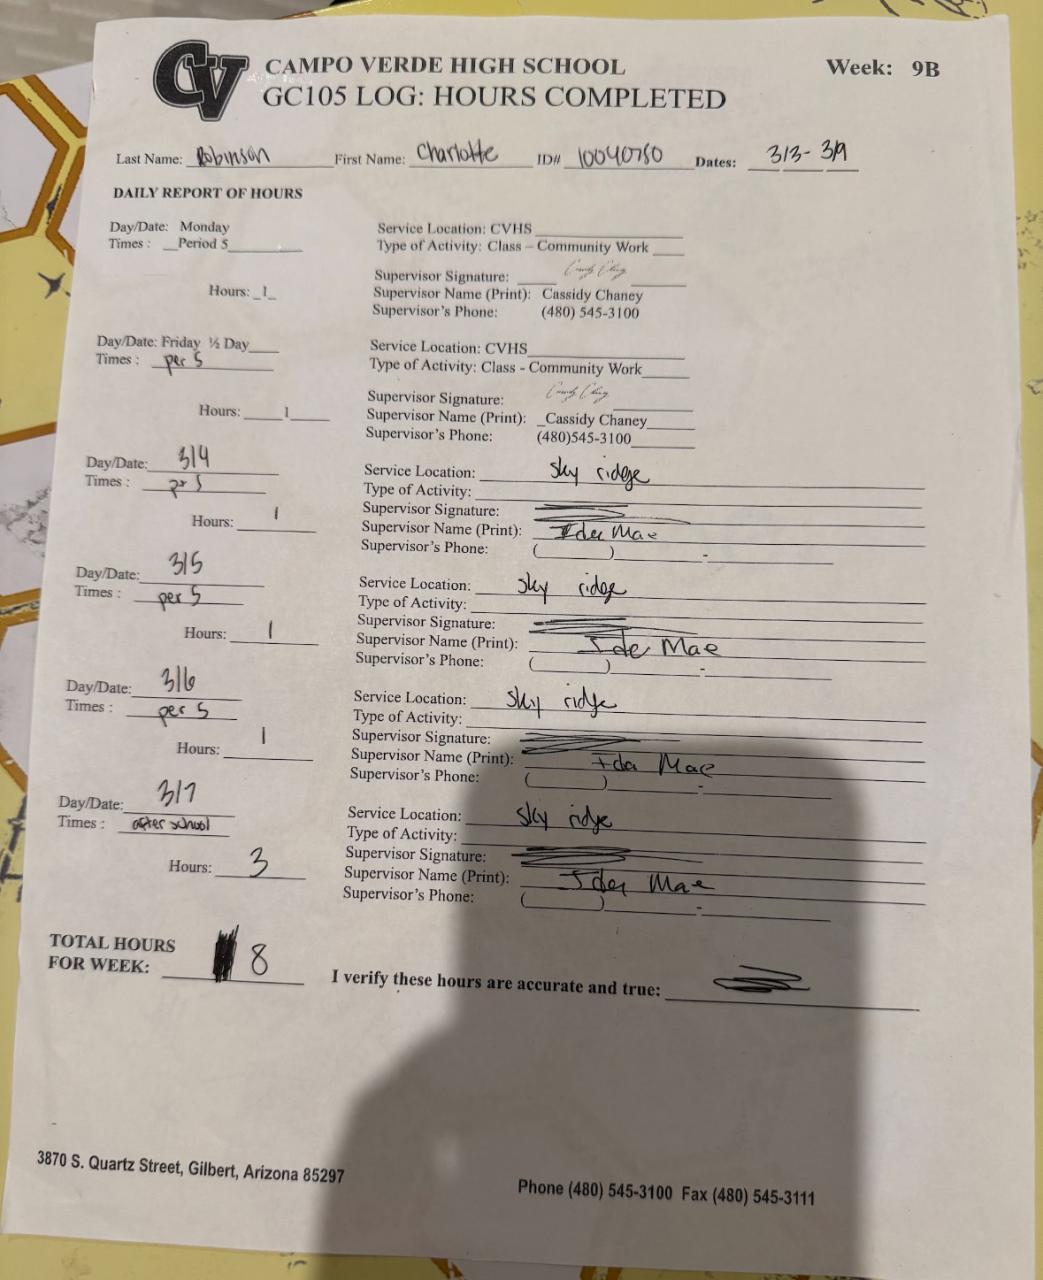 CV CAMPO VERDE HIGH SCHOOL Week: 9B
GC105 LOG: HOURS COMPLETED
Last Name: Robinson First Name: Charlotte ID# 10040750 Dates: 3/3- 3/9
DAILY REPORT OF HOURS
Day/Date: Monday Service Location: CVHS
Times : Period 5 Type of Activity: Class – Community Work
Supervisor Signature:
Hours: 1 Supervisor Name (Print): Cassidy Chaney
Supervisor's Phone: (480) 545-3100
Day/Date: Friday ½ Day Service Location: CVHS
Times : per 5 Type of Activity: Class - Community Work
Supervisor Signature:
Hours: 1 Supervisor Name (Print): Cassidy Chaney
Supervisor's Phone: (480)545-3100
Day/Date: 3/4 Service Location: Sky ridge
Times : per 5 Type of Activity:
Supervisor Signature:
Hours: 1 Supervisor Name (Print): Ida Mae
Supervisor's Phone: ( ) -
Day/Date: 3/5 Service Location: Sky ridge
Times : per 5 Type of Activity:
Supervisor Signature:
Hours: 1 Supervisor Name (Print): Ida Mae
Supervisor's Phone: ( ) -
Day/Date: 3/6 Service Location: Sky ridge
Times : per 5 Type of Activity:
Supervisor Signature:
Hours: 1 Supervisor Name (Print): Ida Mae
Supervisor's Phone: ( ) -
Day/Date: 3/7 Service Location: Sky ridge
Times : after school Type of Activity:
Supervisor Signature:
Hours: 3 Supervisor Name (Print): Ida Mae
Supervisor's Phone: ( ) -
TOTAL HOURS
FOR WEEK: 8 I verify these hours are accurate and true:
3870 S. Quartz Street, Gilbert, Arizona 85297
Phone (480) 545-3100 Fax (480) 545-3111